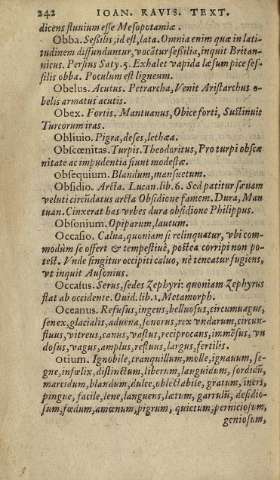 242 IOAN. RAVIS. TEXT.
dicens fluuium esse Mesopotamiæ.
Obba. Sessilis, id est, lata. Omnia enim quæ in lati-
tudinem diffunduntur, vocātur sessilia, inquit Britan-
nicus. Persius Saty. 5. Exhalet vapida læsum pice ses-
silis obba. Poculum est ligneum.
Obelus. Acutus. Petrarcha, Venit Aristarchus o-
belis armatus acutis.
Obex. Fortis. Mantuanus, Obice forti, Sustinuit
Turcorum iras.
Obliuio. Pigra, deses, lethæa.
Obscœnitas. Turpis. Theodoritus, Pro turpi obscæ
nitate ac impudentia sunt modestæ.
Obsequium. Blandum, mansuetum.
Obsidio. Arcta. Lucan. lib. 6. Sed patitur sæuam
veluti circūdatus arcta Obsidione famem. Dura, Man
tuan. Cinxerat has vrbes dura obsidione Philippus.
Obsonium. Opiparum, lautum.
Occasio. Calua, quoniam si relinquatur, vbi com-
modùm se offert & tempestiuè, postea corripi non po-
test. Vnde fingitur occipiti caluo, nè teneatur fugiens,
vt inquit Ausonius.
Occasus. Serus, sedes Zephyri: quoniam Zephyrus
flat ab occidente. Ouid. lib. 1. Metamorph.
Oceanus. Refusus, ingens, belluosus, circumuagus,
senex, glacialis, aduena, sonorus, rex vndarum, circun-
fluus, vitreus, canus, vastus, reciprocans, immēsus, vn
dosus, vagus, amplus, refluus, largus, fertilis.
Otium. Ignobile, tranquillum, molle, ignauum, se-
gne, infœlix, distinctum, liberum, languidum, sordidū,
marcidum, blandum, dulce, oblectabile, gratum, iners,
pingue, facile, lene, languens, lætum, garrulū, desidio-
sum, fœdum, amœnum, pigrum, quietum, perniciosum,
geniosum,